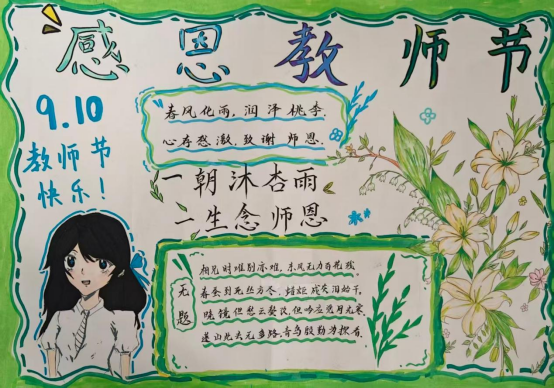 感恩教师节
9.10
教师节
快乐!
春风化雨,润泽桃李.
心存感激,致谢师恩.
一朝沐杏雨
一生念师恩
无题
相见时难别亦难,东风无力百花残
春蚕到死丝方尽,蜡炬成灰泪始干.
晓镜但愁云鬓改,但吟应觉月光寒
蓬山此去无多路,青鸟殷勤为探看.